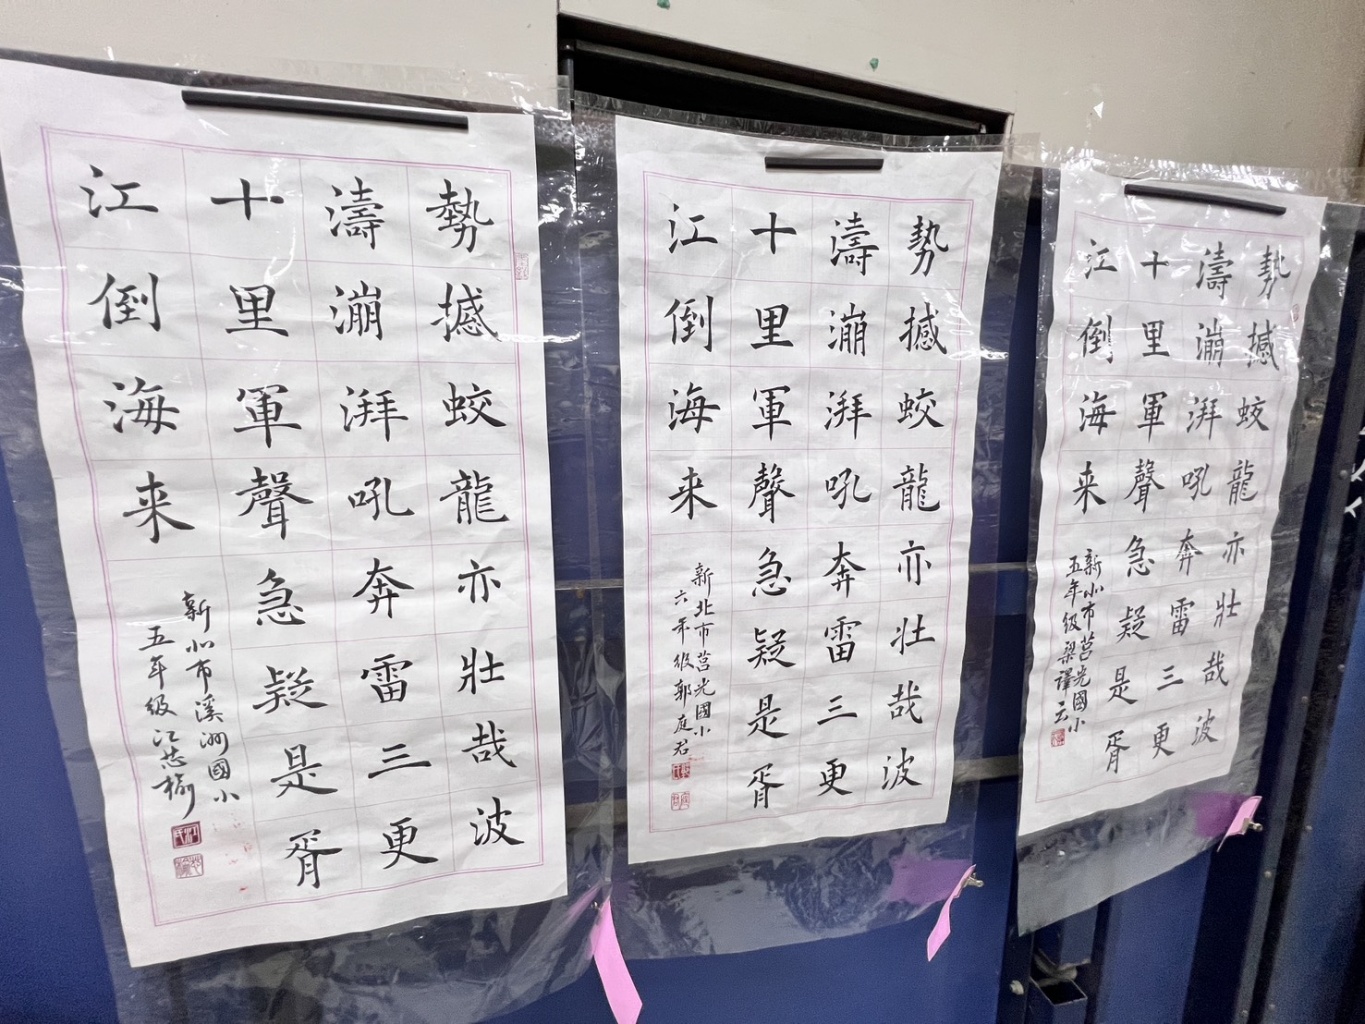 勢撼蛟龍亦壯哉波
濤漰湃吼奔雷三更
十里軍聲急疑是胥
江倒海来
新北市溪洲國小
五年級江芯榆
勢撼蛟龍亦壯哉波
濤漰湃吼奔雷三更
十里軍聲急疑是胥
江倒海来
新北市莒光國小
六年級郭庭君
勢撼蛟龍亦壯哉波
濤漰湃吼奔雷三更
十里軍聲急疑是胥
江倒海来
新北市莒光國小
五年級梁謹云